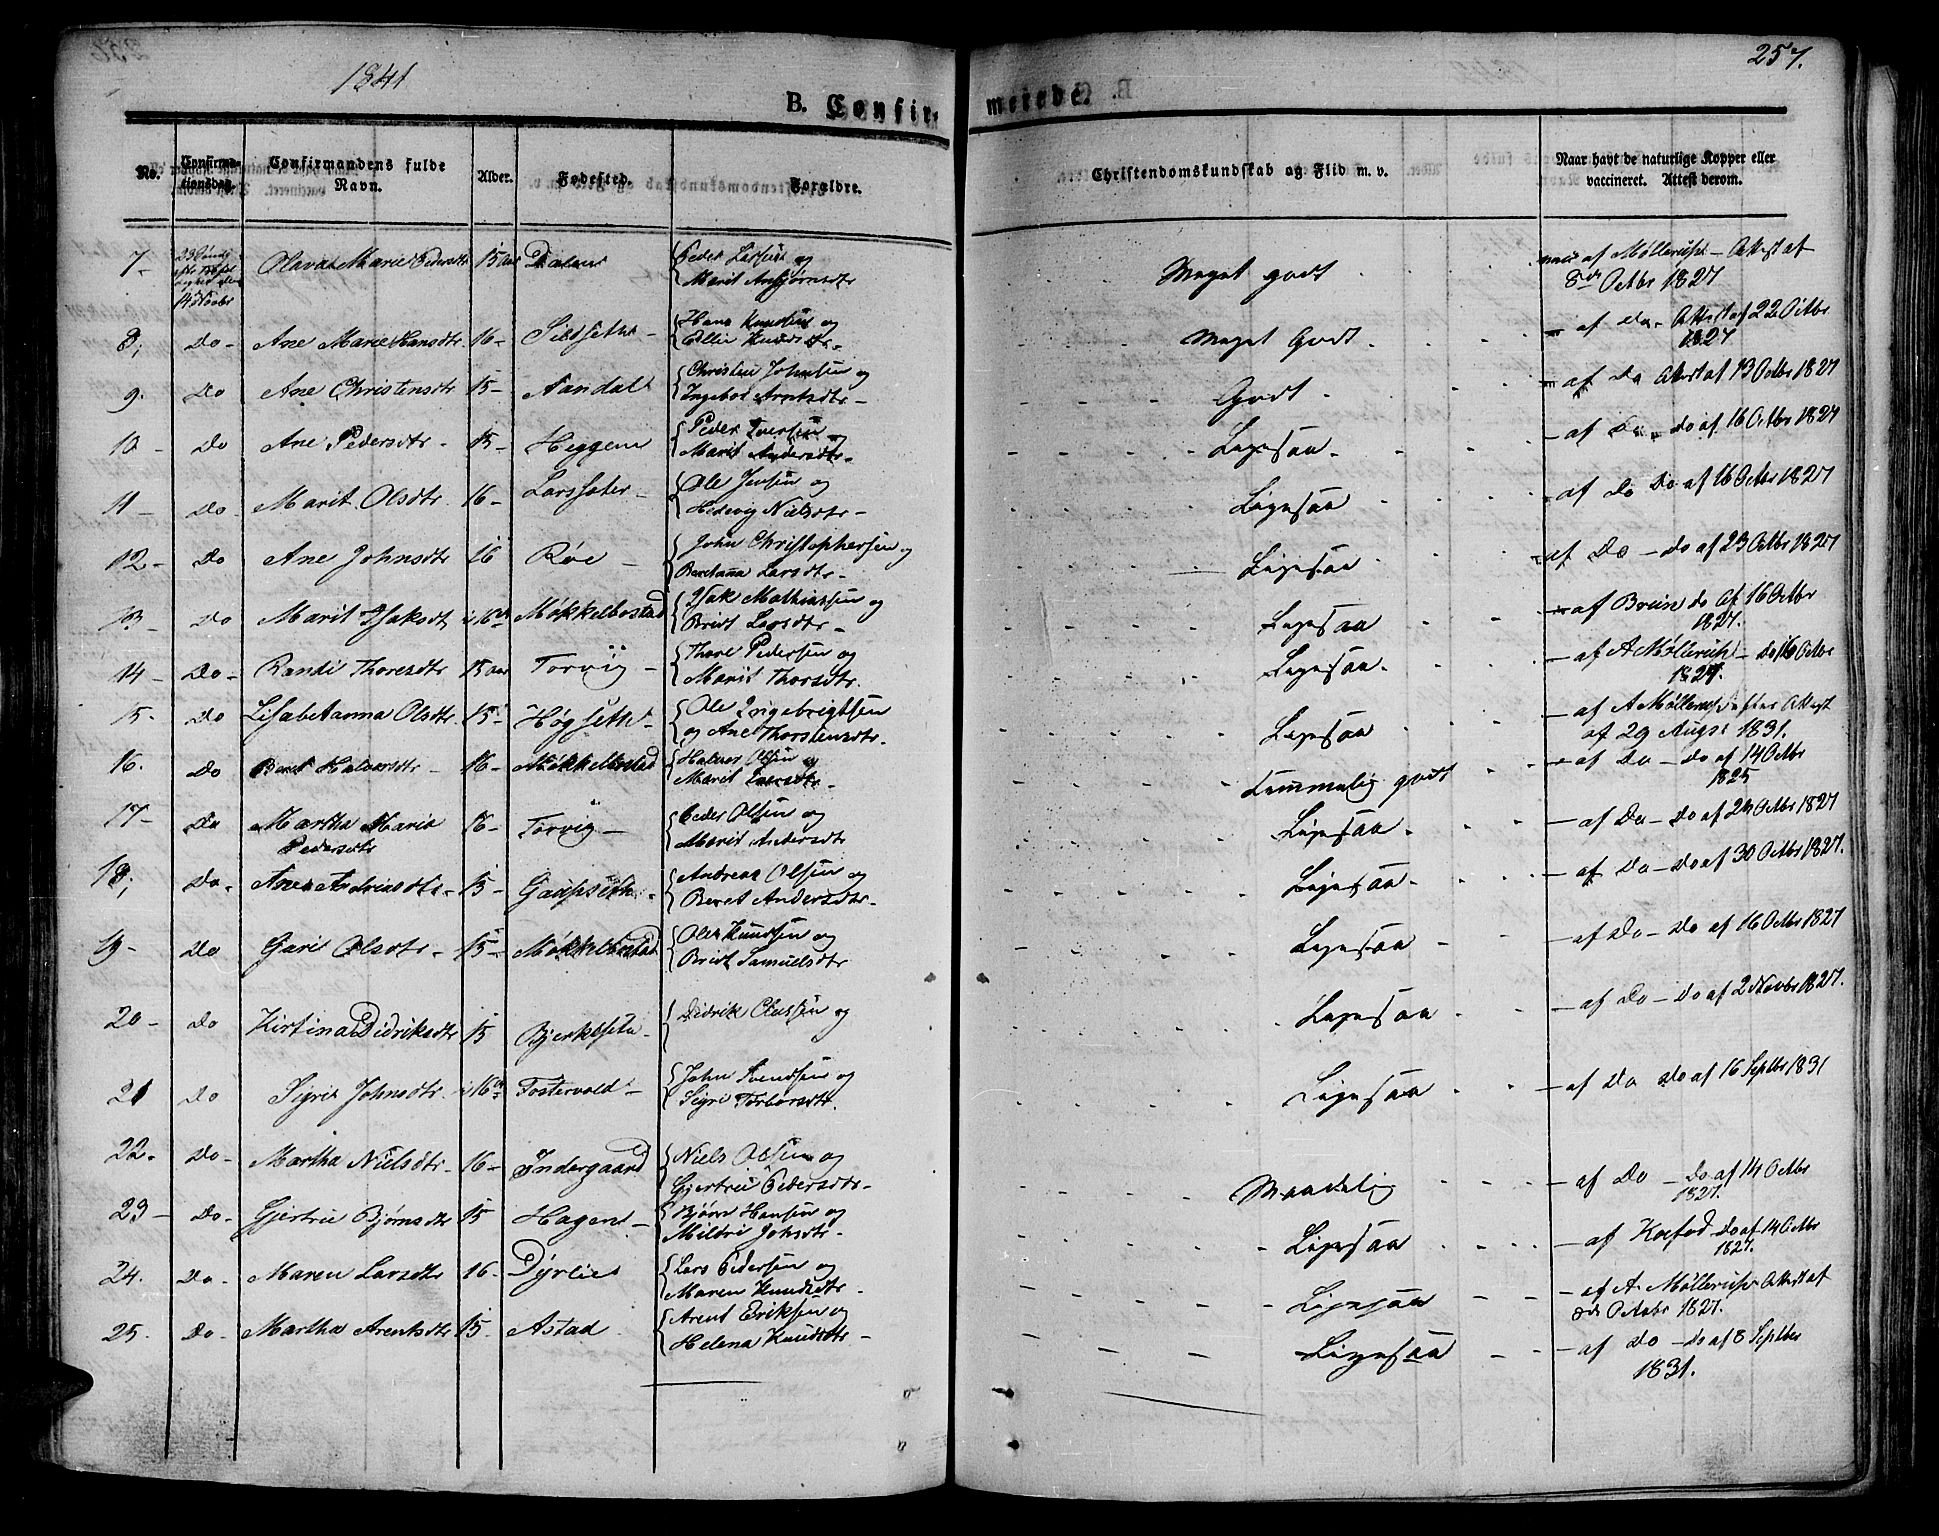 1841
257.
B. Confir-
merede.
No.
Confirma-
tionsdag.
Confirmandens fulde
Navn.
Alder.
Fødested.
Forældre.
Christendomskundskab og Flid m. v.
Naar havt de naturlige Kopper eller
vaccineret. Attest derom.
7- 14 Novbr Olava Marie Pedersdtr 15 aar Peder Larsen og
Marit Anbjørnsdtr Meget godt af Møllerup - Attest af
8de Octbr 1827
8, Do- Ane Marie Hansdtr 16- Sildsethe - Hans Knudsen og
Ellin Knudsdtr - Meget Godt - af Do- Attest af 22 Octbr
1827
9. Do Ane Christensdtr 15- Christen Johnsen og
Ingebor Arntsdtr - Godt - af Do Attest af 13 Octbr 1827
10- Do Ane Pedersdtr - 15- Heggem Peder Iversen og
Marit Andersdtr - Ligesaa - - af Do do af 16 Octbr 1827
11- Do- Marit Olsdtr 16- Larssæter - Ole Jensen og
Hedevig Nielsdtr - Ligesaa - af Do Do af 16 Octbr 1827
12- Do Ane Johnsdtr 16 Røe - John Christophersen og
Beretanna Larsdtr - Ligesaa - af Do - do af 23 Octbr 1827
13- Do Marit Isaksdt 16 Møkkelbostad Isak Mathiassen og
Bridt Larsdtr - Ligesaa - af Brein do af 16 Octbr
1827.
14- Do- Randi Thoresdtr 15 aar Torvig - Thore Pedersen og
Marit Thorsdtr. Ligesaa - - af A Møllerup - Do 16 Octbr
1827.
15- Do Lisabetanna Olsdtr 15 Høgseth - Ole Ingebrigtsen
og Ane Thorstensdtr - Ligesaa - af A Møllerup efter Attest
af 29 Augst 1831.
16. Do Beret Halvorsdtr - 16- Møkkelbostad Halvor Olsen og
Marit Iversdtr - Temmelig godt - af Do - do af 14 Octbr
1825
17- Do Martha Maria
Pedersdtr 16- Torvig - Peder Olsen og
Marit Andersdtr Ligesaa - - af Do - Do af 24 Octbr 1827
18, Do- Ane Andreasdtr - 15- Gaupseth - Andreas Olsen og
Beret Andersdtr - Ligesaa - - af Do - Do af 30 Octbr 1827.
19- Do Guri Olsdtr - 15- Møkkelbostad Ole Knudsen og
Bridt Samuelsdtr Ligesaa - af Do - Do af 16 Octbr 1827
20- Do Kirtina Didriksdtr 15 Didrik Clausen og
Ligesaa - af Do - Do af 2 Novbr 1827.
21 Do Sigrit Johnsdtr 16 Fostervold - John Svendsen og
Sigri Torborsdtr. Ligesaa - af Do Do af 16 Septbr 1831
22- Do- Martha Nielsdtr - 16- Indergaard Niels Olsen og
Gjertru Pedersdtr - Maadelig - af Do - Do af 14 Octbr
1827.
23- Do- Gjertru Bjørnsdtr 15 Hagen - Bjørn Hansen og
Mildri Johsdtr - Ligesaa - af Koefod do af 14 Octbr
1827.
24. Do- Maren Larsdtr 16- Dyrlie Lars Pedersen og
Maren Knudsdtr - Ligesaa - af A. Møllerup Attest af
8de Octobr 1827.
25. Do- Martha Arentsdtr 15- Astad Arent Eriksen og
Helena Knudsdtr - Ligesaa - af Do - Do af 8 Septbr
1831.